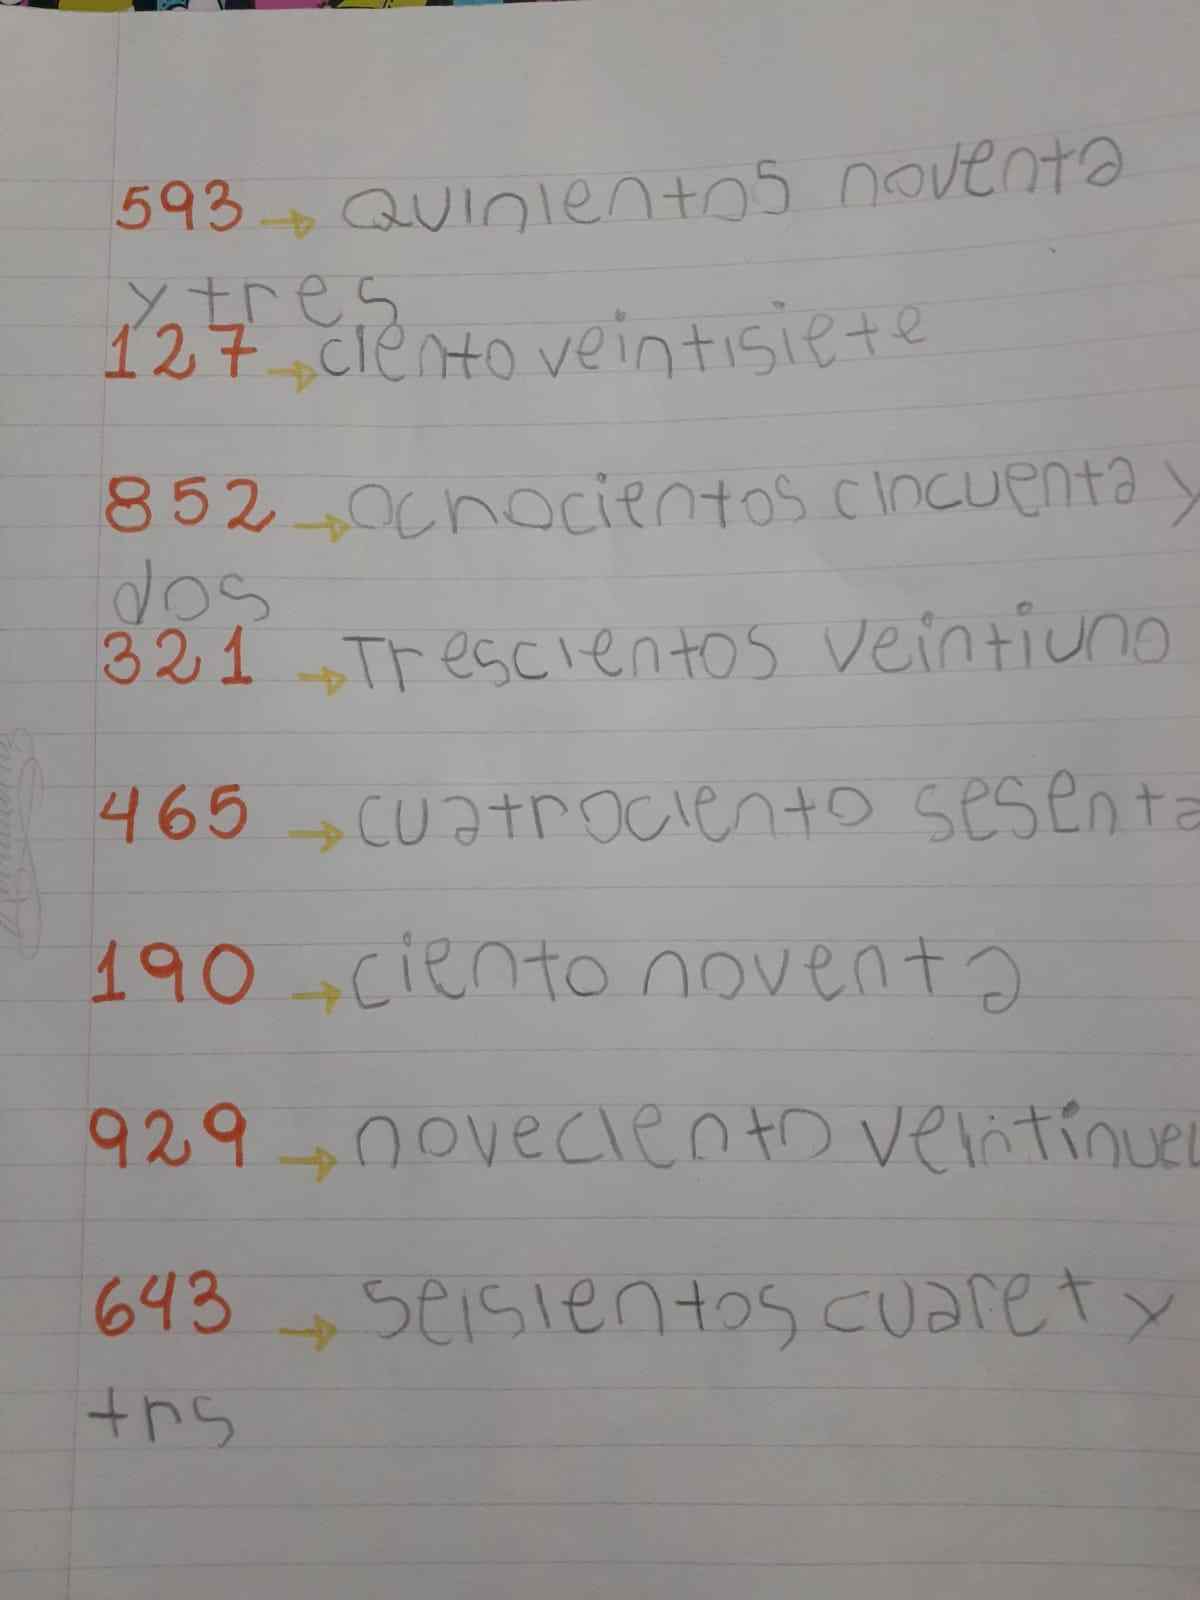 593 → Quinientos noventa
y tres
127 → ciento veintisiete
852 → ochocientos cincuenta y
dos
321 → Trescientos veintiuno
465 → cuatrociento sesenta
190 → ciento noventa
929 → noveciento veintinue
643 → seisientos cuaret y
trs